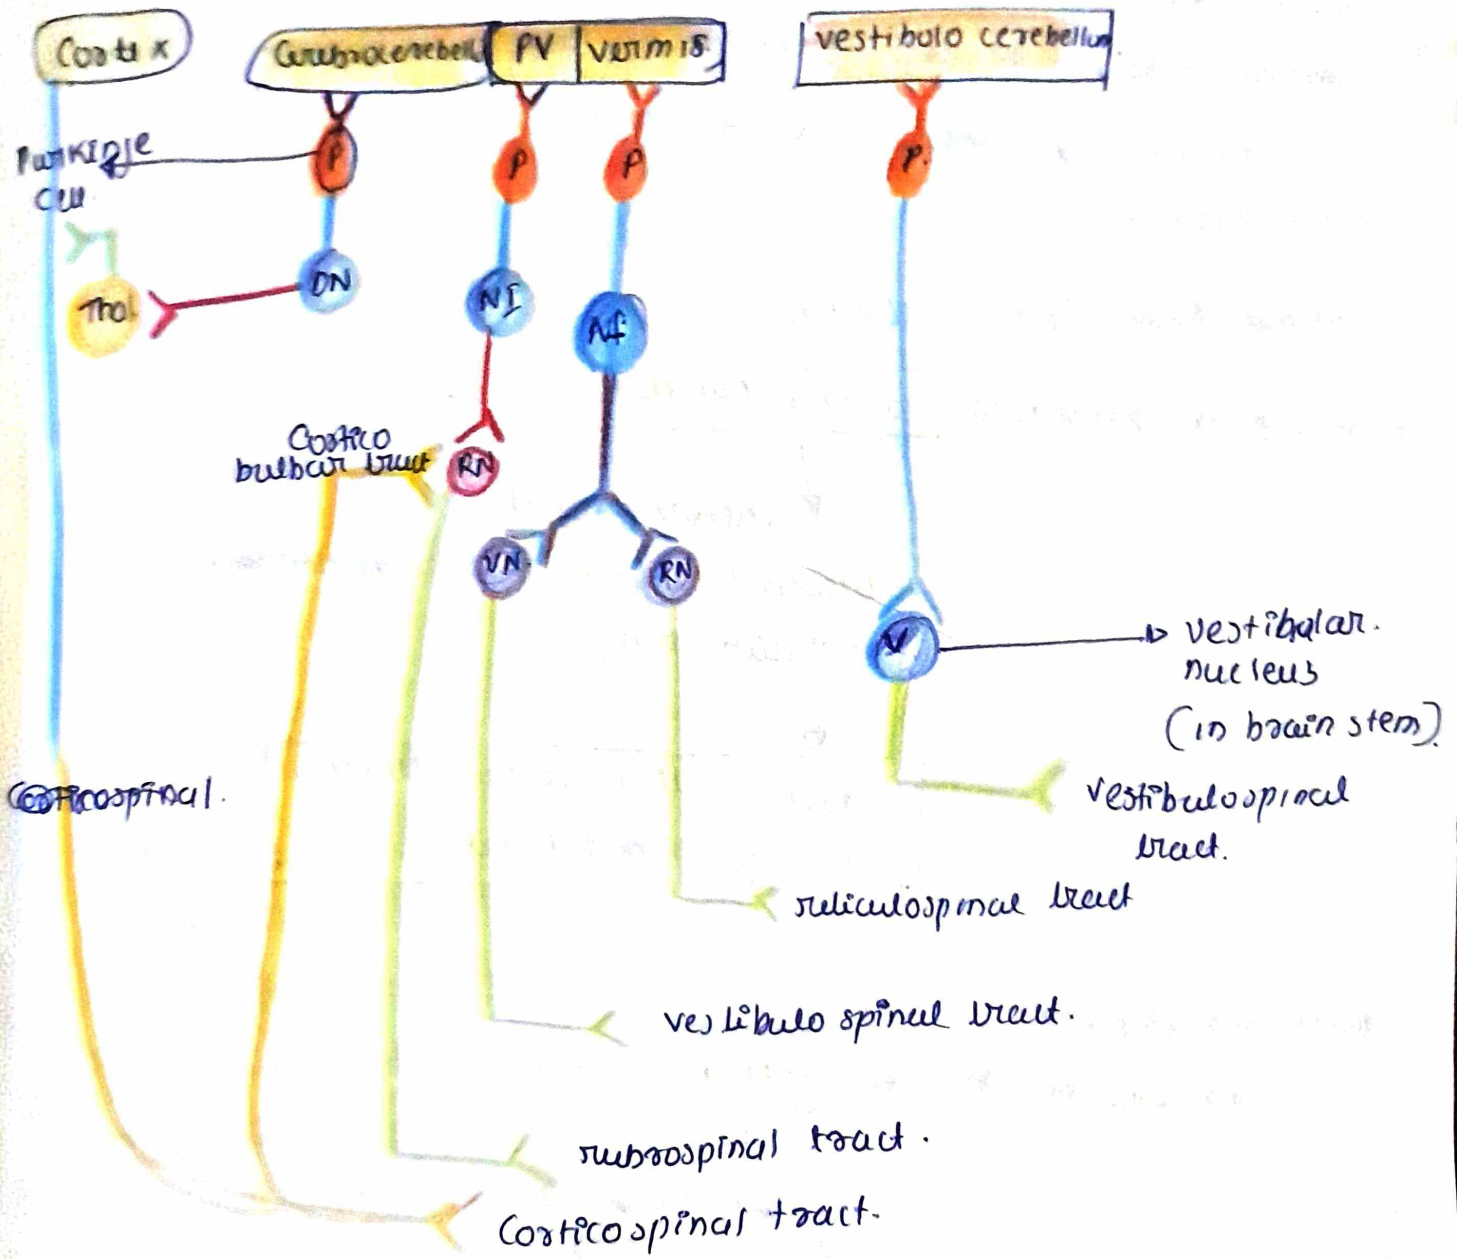 Cortex
Cerebrocerebell
PV
vermis
vestibulo cerebellum
Purkinje
cell
P
P
P
P.
DN
NI
Nf
Thal
Cortico
bulbar tract
RN
VN
RN
V
vestibular.
nucleus
(in brain stem).
Corticospinal.
vestibulospinal
tract.
reticulospinal tract
vestibulo spinal tract.
rubrospinal tract.
Corticospinal tract.